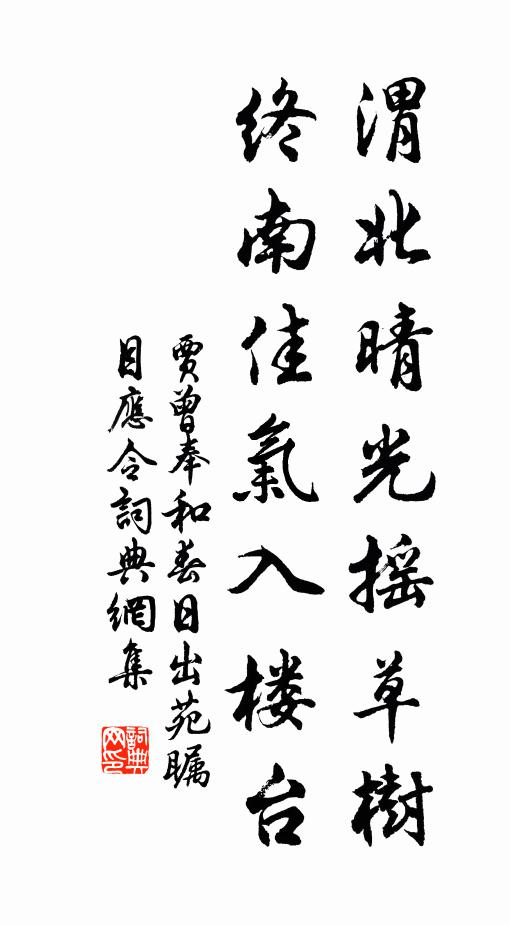 渭北晴光摇草樹
终南佳氣入楼台
贾曾奉和春日出苑瞩
目應令詞典網集
詞典網印